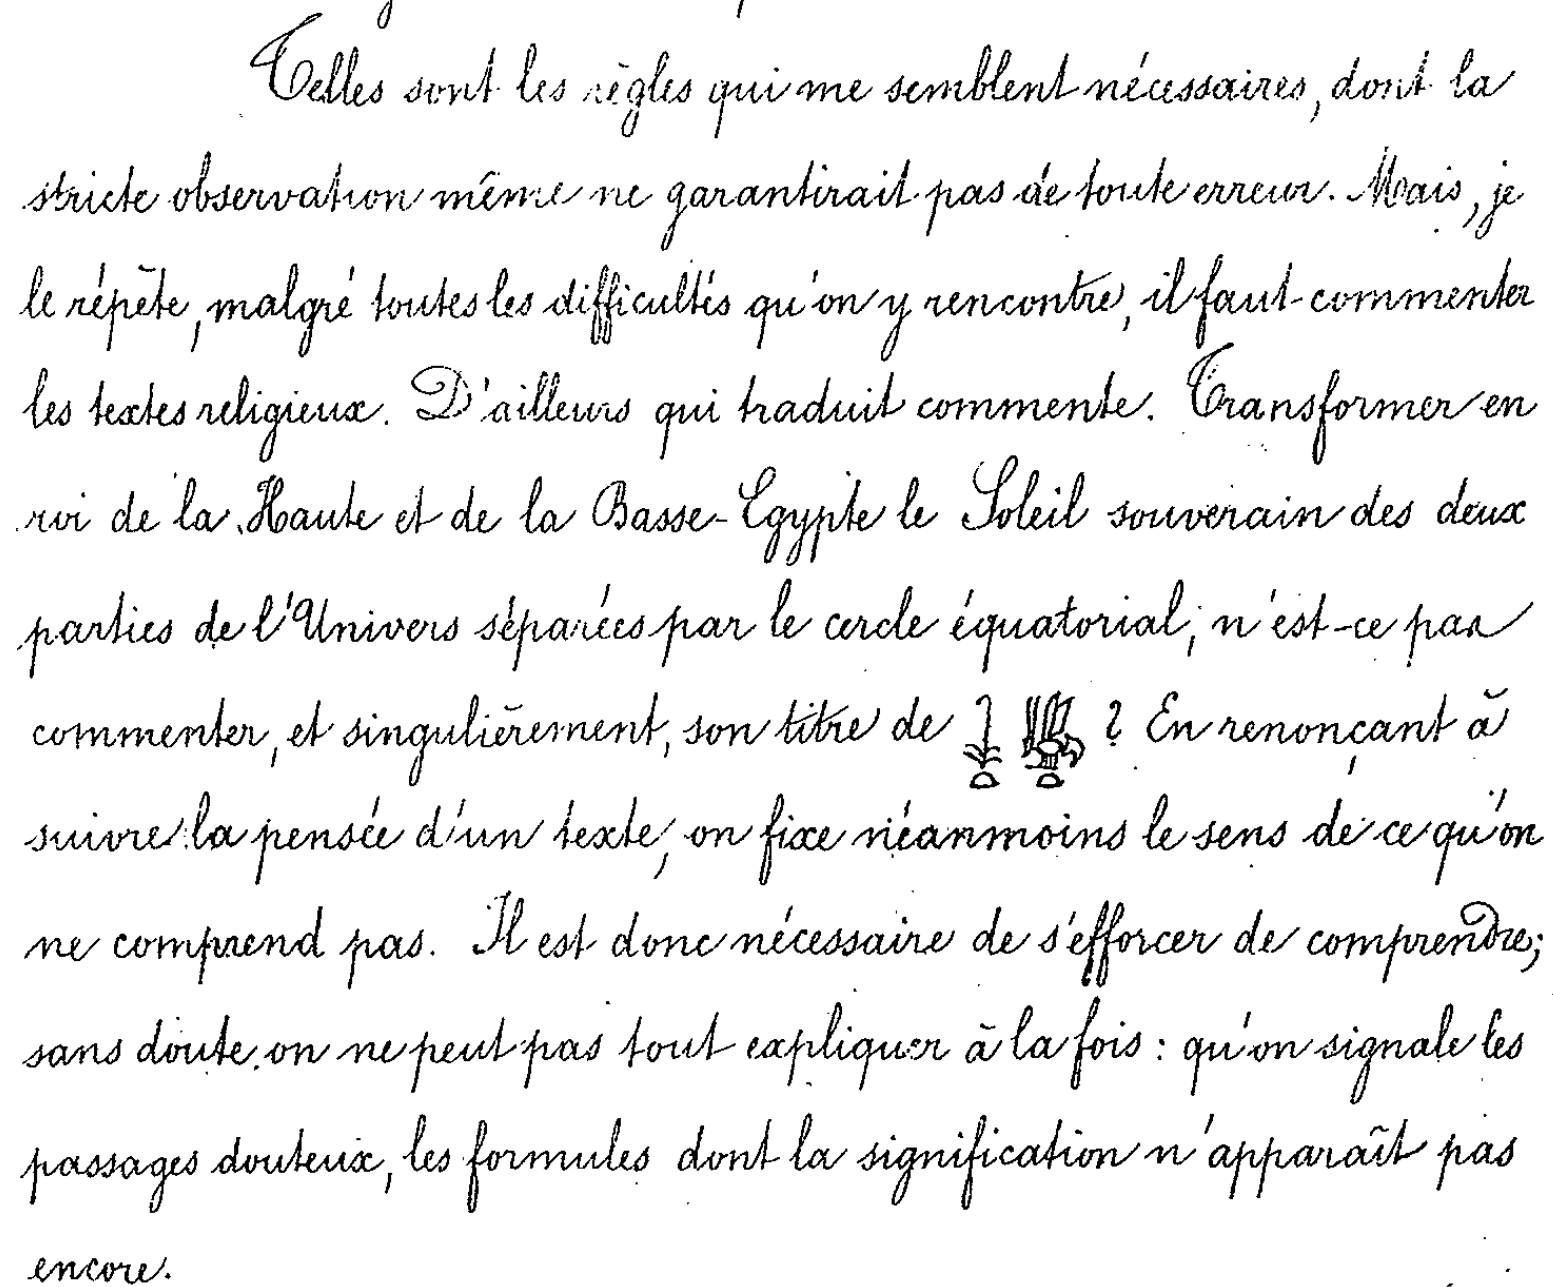 Telles sont les règles qui me semblent nécessaires, dont la
stricte observation même ne garantirait pas de toute erreur. Mais, je
le répète, malgré toutes les difficultés qu'on y rencontre, il faut commenter
les textes religieux. D'ailleurs qui traduit commente. Transformer en
roi de la Haute et de la Basse-Egypte le Soleil souverain des deux
parties de l'Univers séparées par le cercle équatorial, n'est-ce pas
commenter, et singulièrement, son titre de ? En renonçant à
suivre la pensée d'un texte, on fixe néanmoins le sens de ce qu'on
ne comprend pas. Il est donc nécessaire de s'efforcer de comprendre;
sans doute on ne peut pas tout expliquer à la fois : qu'on signale les
passages douteux, les formules dont la signification n'apparaît pas
encore.